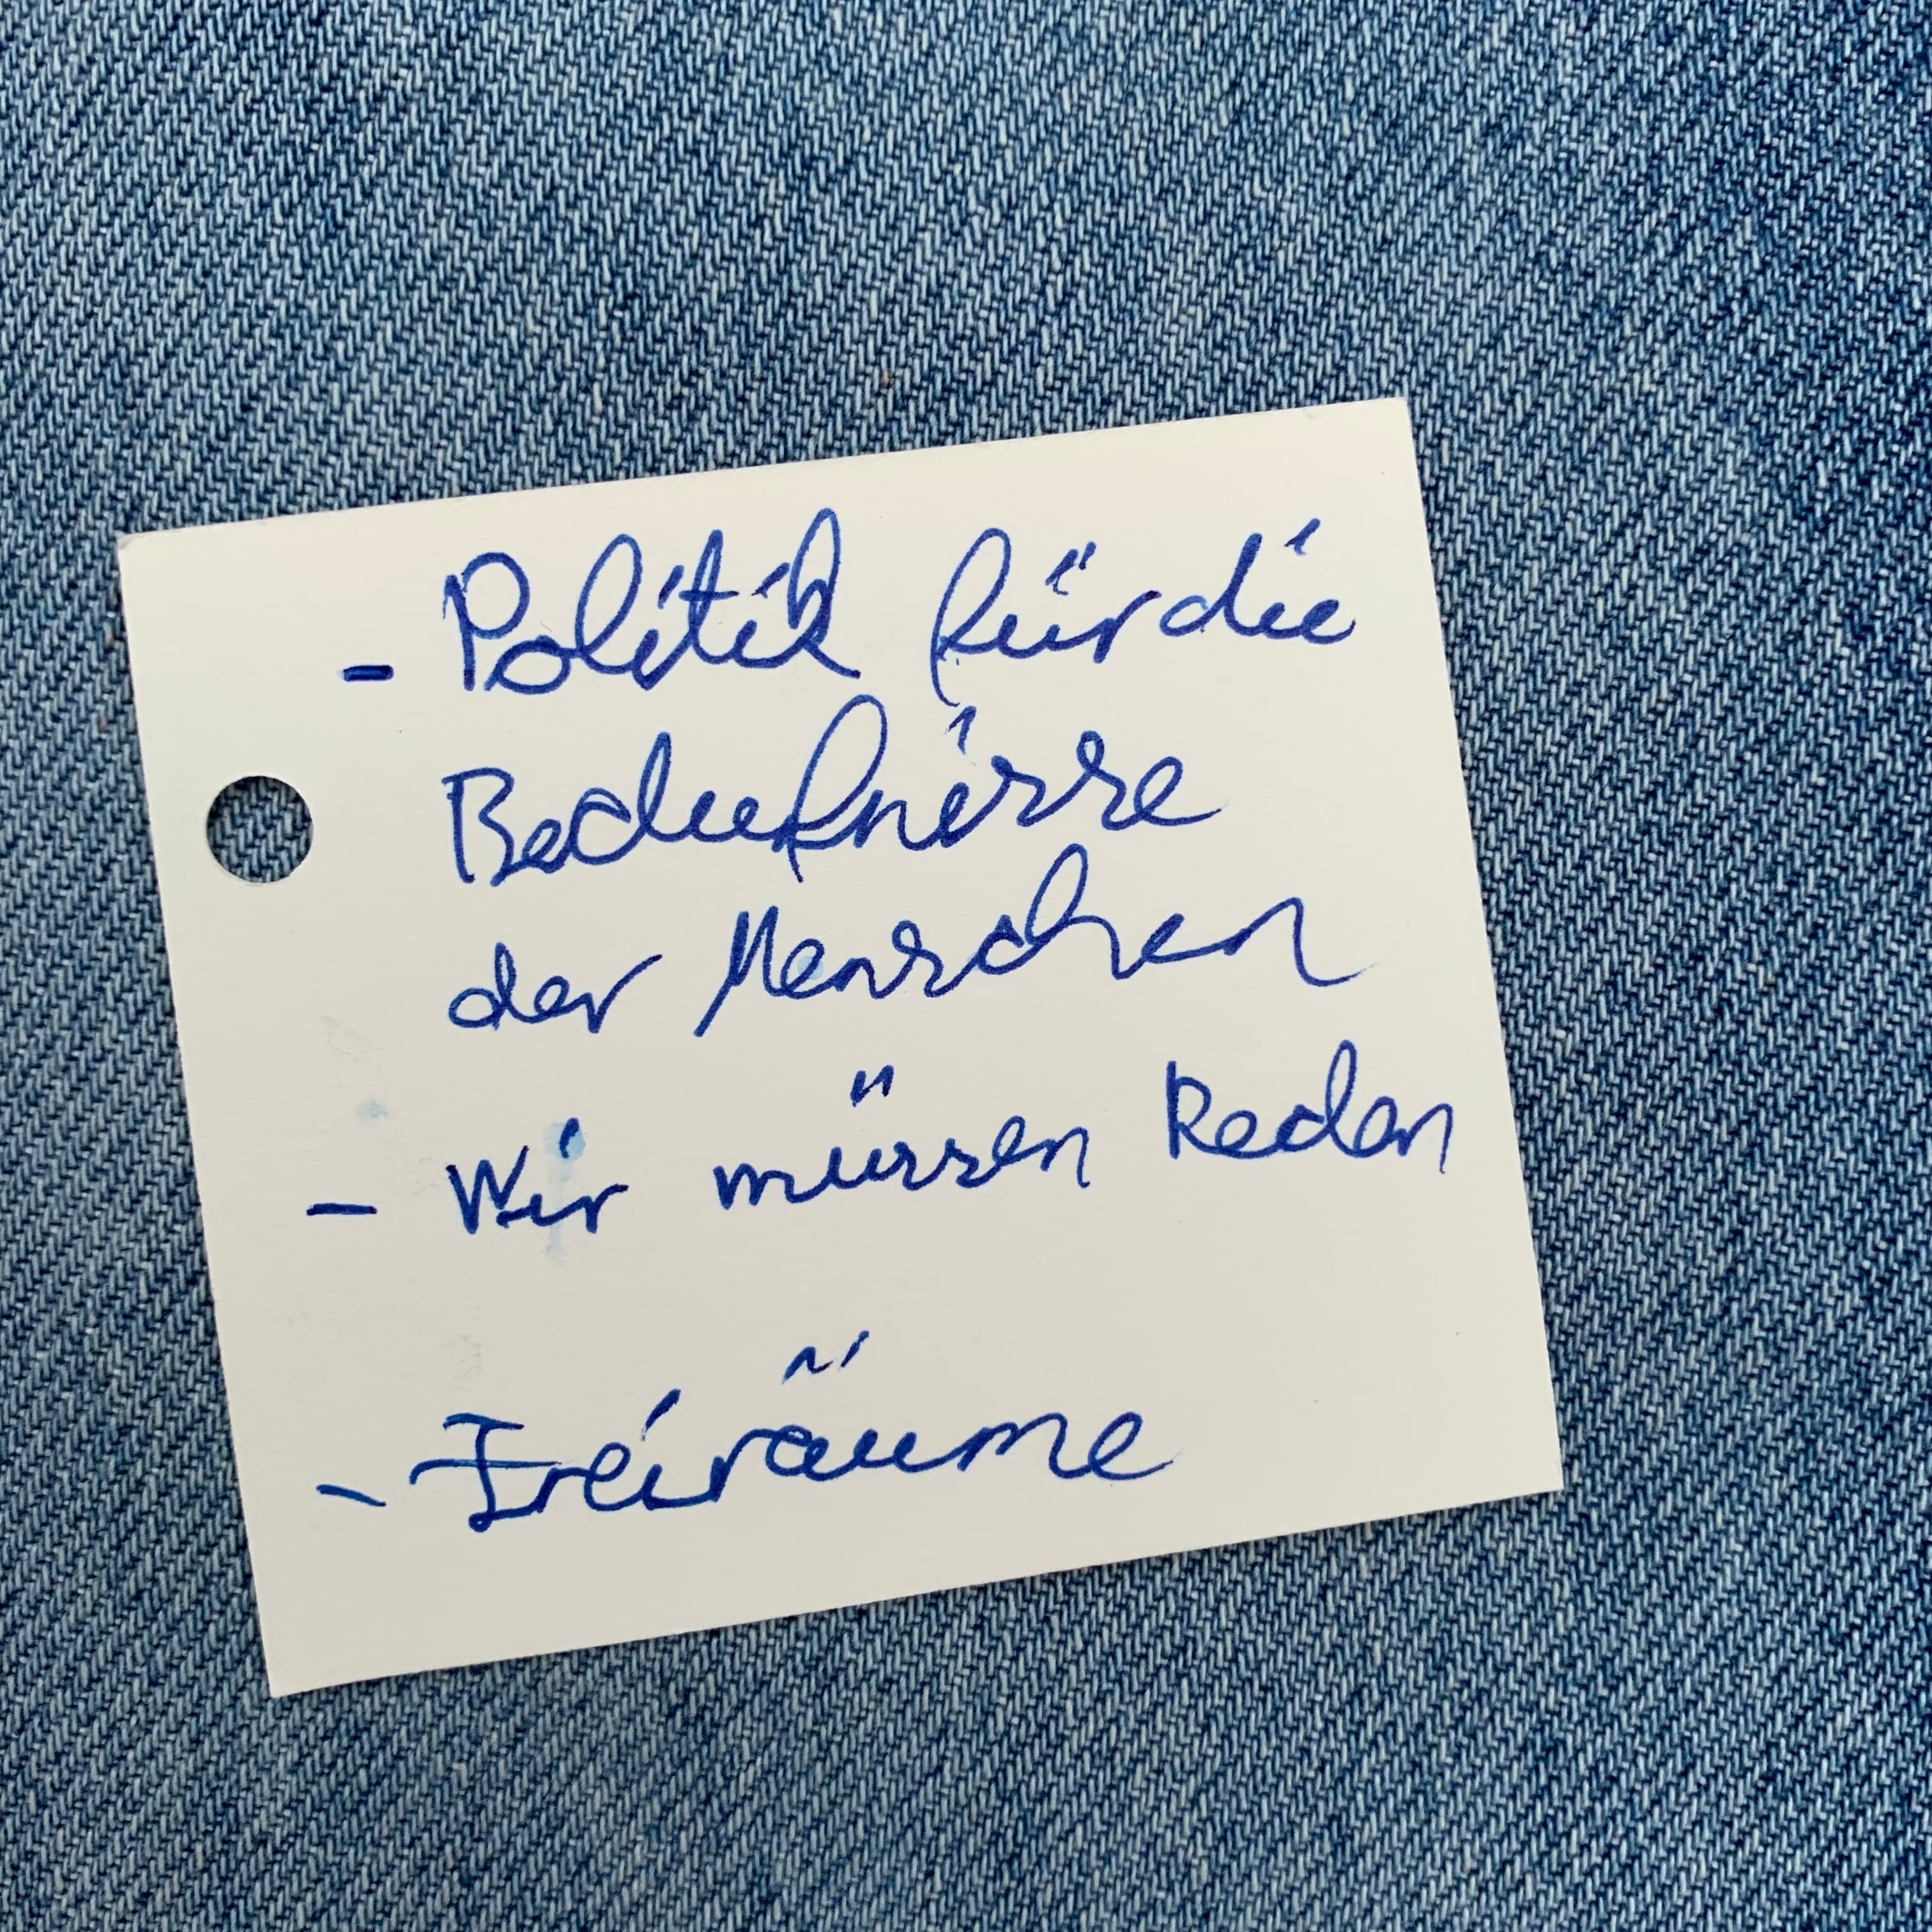 - Politik für die
Bedürfnisse
der Menschen
- Wir müssen Reden
- Freiräume